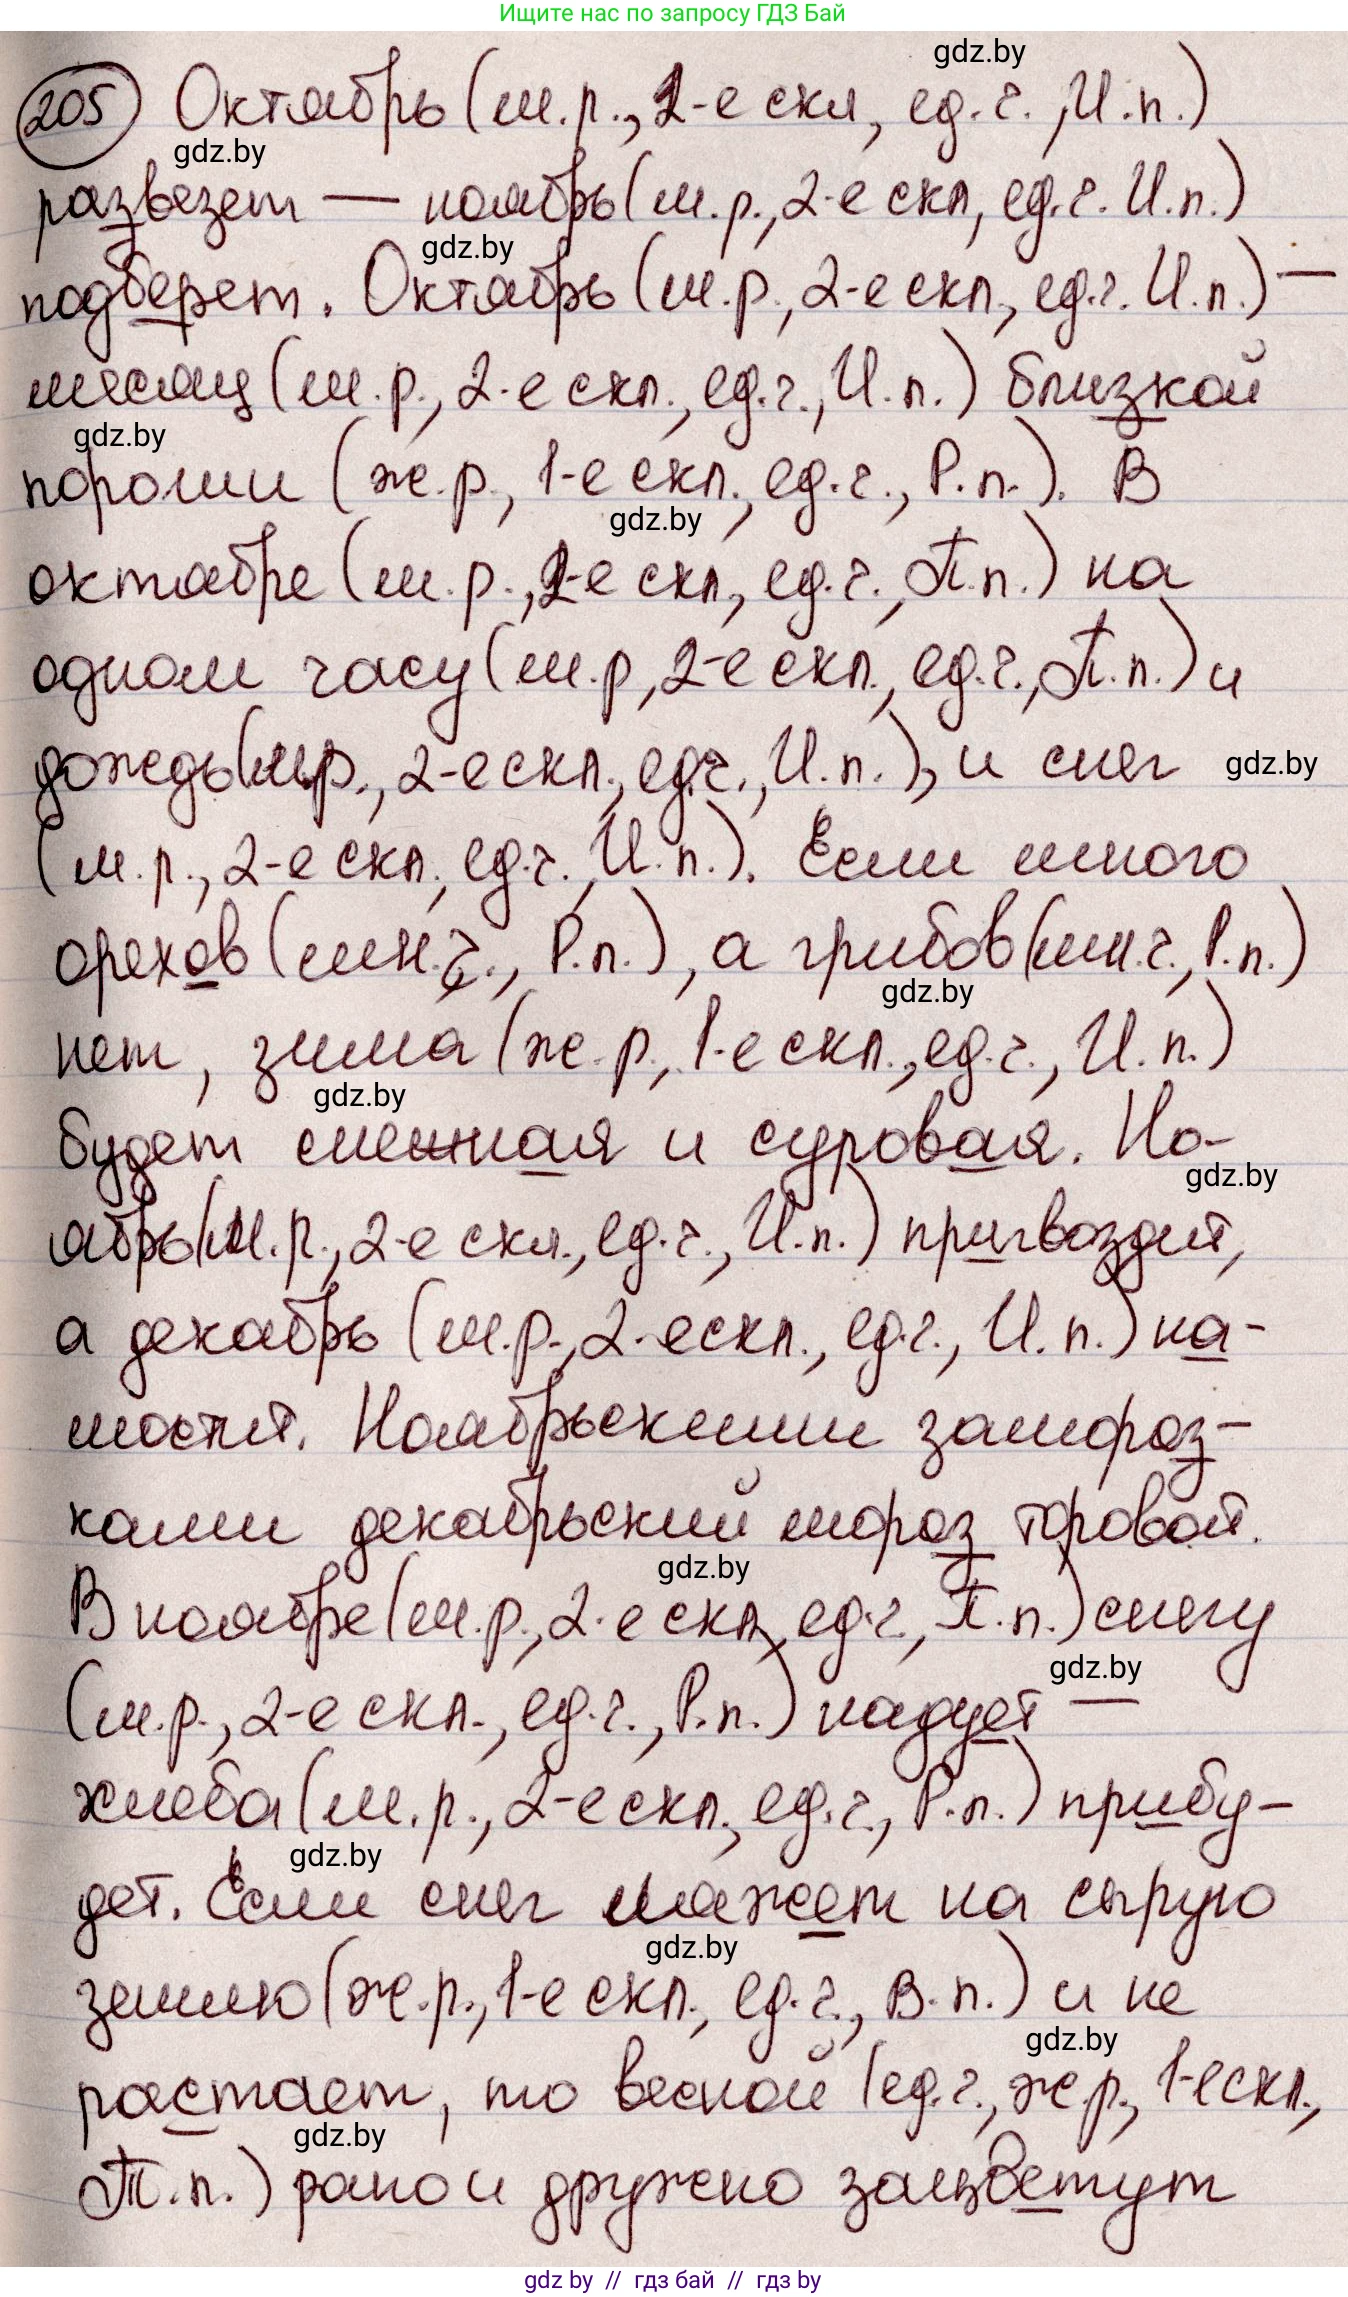 Ищите нас по запросу ГДЗ Бай
gdz.by
205 Октябрь (м.р., 2-е скл, ед.ч., И.п.)
gdz.by
развезет — ноябрь (м.р., 2-е скл, ед.ч. И.п.)
gdz.by
подберет. Октябрь (м.р., 2-е скл., ед.ч. И.п.) —
месяц (м.р., 2-е скл., ед.ч., И.п.) близкой
gdz.by
пороши (ж.р., 1-е скл., ед.ч., Р.п.). В
gdz.by
октябре (м.р., 2-е скл., ед.ч., П.п.) на
одном часу (м.р, 2-е скл., ед.ч., П.п.) и
дождь (м.р., 2-е скл., ед.ч., И.п.), и снег
gdz.by
(м.р., 2-е скл., ед.ч., И.п.). Если много
орехов (мн.ч., Р.п.), а грибов (мн.ч., Р.п.)
gdz.by
нет, зима (ж.р., 1-е скл., ед.ч., И.п.)
gdz.by
будет снежная и суровая. Но-
gdz.by
ябрь (м.р., 2-е скл., ед.ч., И.п.) пригвоздит,
а декабрь (м.р., 2-е скл., ед.ч., И.п.) на-
мостит. Ноябрьскими замороз-
ками декабрьский мороз торовой.
gdz.by
В ноябре (м.р., 2-е скл, ед.ч., П.п.) снегу
gdz.by
(м.р., 2-е скл., ед.ч., Р.п.) надует —
хлеба (м.р., 2-е скл., ед.ч., Р.п.) прибу-
gdz.by
дет. Если снег ляжет на сырую
gdz.by
землю (ж.р., 1-е скл., ед.ч., В.п.) и не
gdz.by
растает, то весной (ед.ч., ж.р., 1-е скл.,
gdz.by
Т.п.) рано и дружно зацветут
gdz by // гдз бай // гдз by